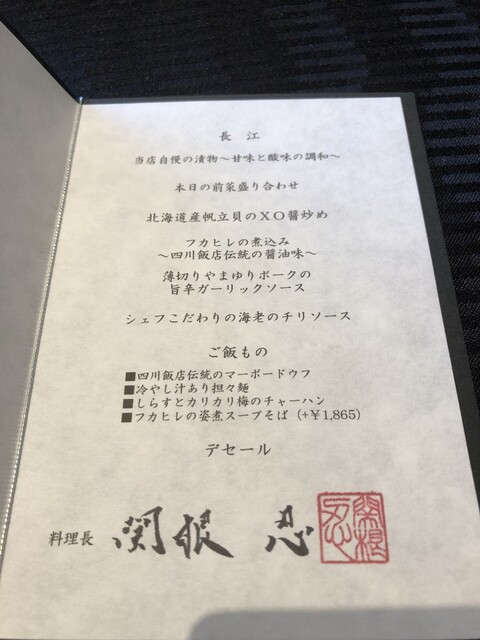 長江
当店自慢の漬物～甘味と酸味の調和～
本日の前菜盛り合わせ
北海道産帆立貝のXO醤炒め
フカヒレの煮込み
～四川飯店伝統の醤油味～
薄切りやまゆりポークの
旨辛ガーリックソース
シェフこだわりの海老のチリソース
ご飯もの
■四川飯店伝統のマーボードウフ
■冷やし汁あり担々麺
■しらすとカリカリ梅のチャーハン
■フカヒレの姿煮スープそば（+￥1,865）
デセール
料理長 関根 忍
関根
忍